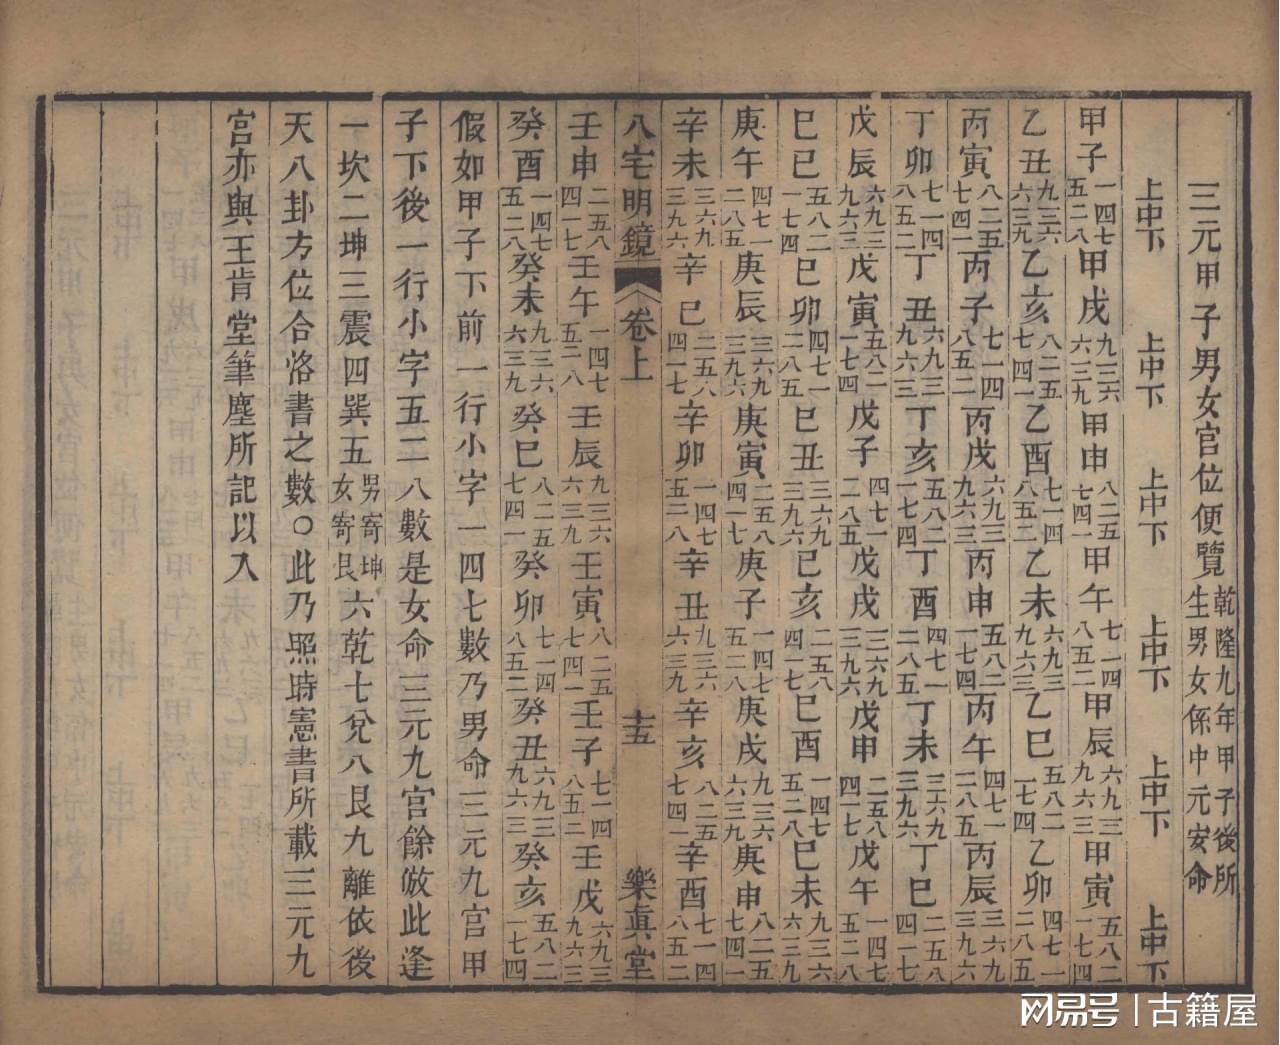 三元甲子男女宫位便覽 乾隆九年甲子後所 生男女係中元安命
上中下 上中下 上中下 上中下 上中下 上中下
甲子 一四七 五二八 甲戌 九三六 六三九 甲申 八二五 七四一 甲午 七一四 八五二 甲辰 六九三 九六三 甲寅 五八二 一七四
乙丑 九三六 六三九 乙亥 八二五 七四一 乙酉 七一四 八五二 乙未 六九三 九六三 乙巳 五八二 一七四 乙卯 四七一 二八五
丙寅 八二五 七四一 丙子 七一四 八五二 丙戌 六九三 九六三 丙申 五八二 一七四 丙午 四七一 二八五 丙辰 三六九 三九六
丁卯 七一四 八五二 丁丑 六九三 九六三 丁亥 五八二 一七四 丁酉 四七一 二八五 丁未 三六九 三九六 丁巳 二五八 四一七
戊辰 六九三 九六三 戊寅 五八二 一七四 戊子 四七一 二八五 戊戌 三六九 三九六 戊申 二五八 四一七 戊午 一四七 五二八
己巳 五八二 一七四 己卯 四七一 二八五 己丑 三六九 三九六 己亥 二五八 四一七 己酉 一四七 五二八 己未 九三六 六三九
庚午 四七一 二八五 庚辰 三六九 三九六 庚寅 二五八 四一七 庚子 一四七 五二八 庚戌 九三六 六三九 庚申 八二五 七四一
辛未 三六九 三九六 辛巳 二五八 四一七 辛卯 一四七 五二八 辛丑 九三六 六三九 辛亥 八二五 七四一 辛酉 七一四 八五二
八宅明鏡 卷上 十五 樂真堂
壬申 二五八 四一七 壬午 一四七 五二八 壬辰 九三六 六三九 壬寅 八二五 七四一 壬子 七一四 八五二 壬戌 六九三 九六三
癸酉 一四七 五二八 癸未 九三六 六三九 癸巳 八二五 七四一 癸卯 七一四 八五二 癸丑 六九三 九六三 癸亥 五八二 一七四
假如甲子下前一行小字一四七數乃男命三元九宫甲
子下後一行小字五二八數是女命三元九宫餘倣此逢
一坎二坤三震四巽五 男寄坤 女寄艮 六乾七兌八艮九離依後
天八卦方位合洛書之數○此乃照時憲書所載三元九
宫亦與王肯堂筆塵所記以入
网易号 | 古籍屋